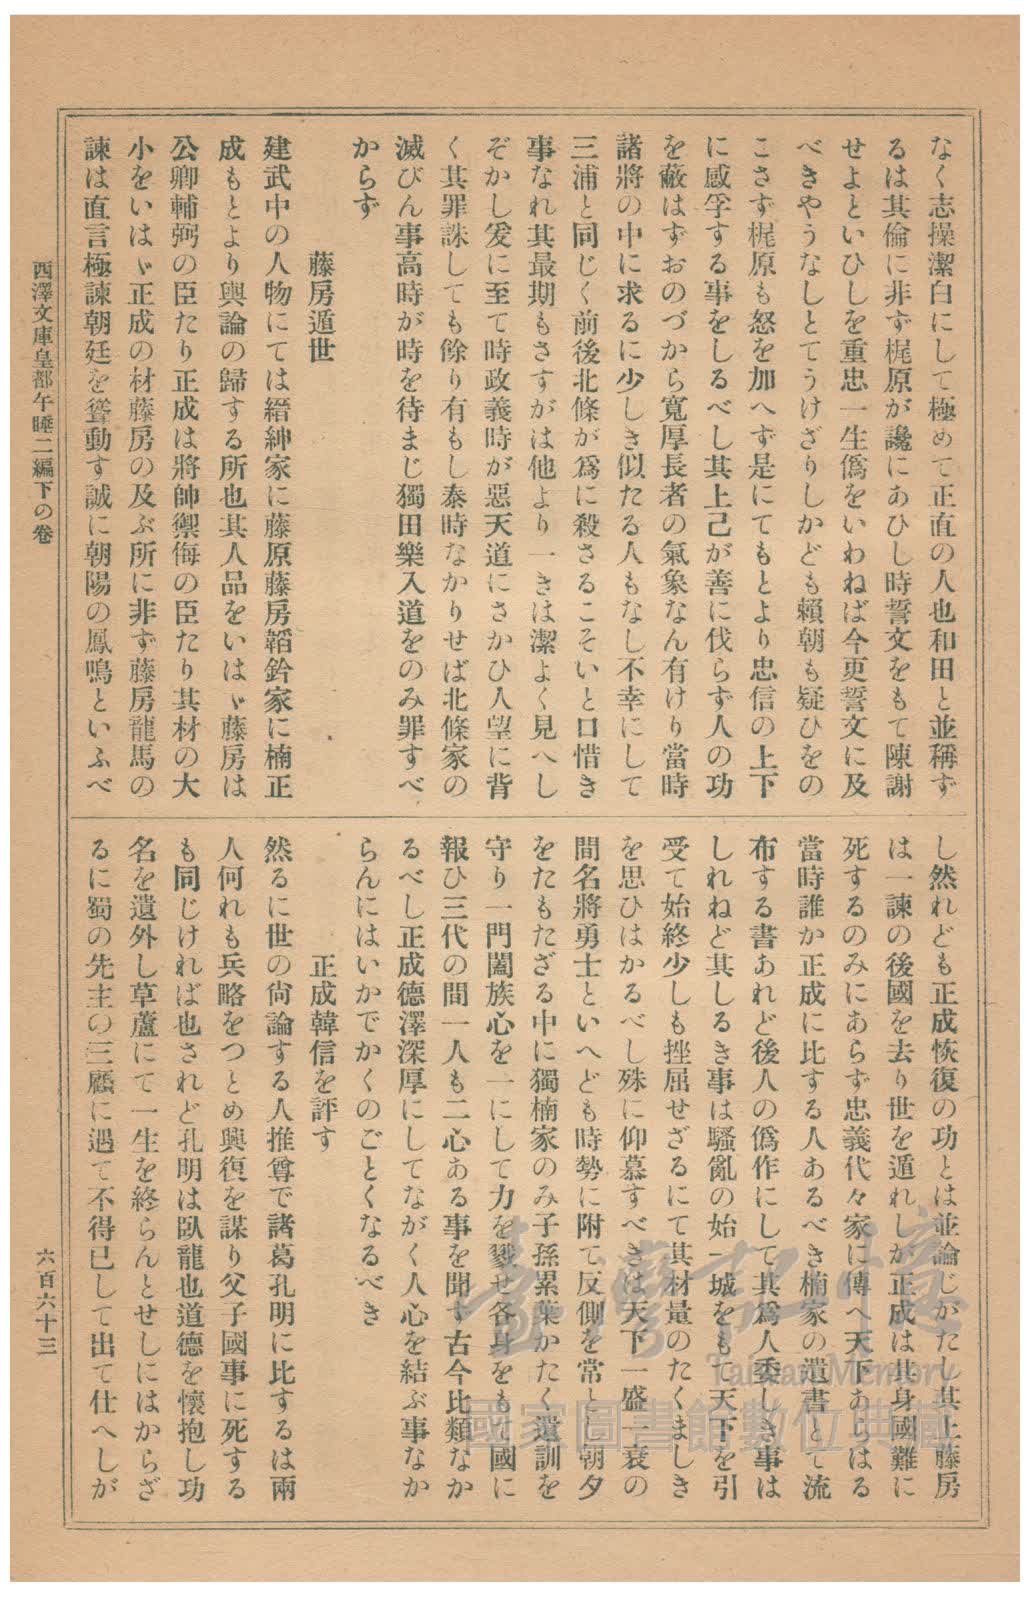 なく志操潔白にして極めて正直の人也和田と並稱ず
るは其倫に非ず梶原が讒にあひし時誓文をもて陳謝
せよといひしを重忠一生僞をいわねば今更誓文に及
べきやうなしとてうけざりしかども賴朝も疑ひをの
こさず梶原も怒を加へず是にてもとより忠信の上下
に感孚する事をしるべし其上己が善に伐らず人の功
を蔽はずおのづから寬厚長者の氣象なん有けり當時
諸將の中に求るに少しき似たる人もなし不幸にして
三浦と同じく前後北條が爲に殺さるこそいと口惜き
事なれ其最期もさすがは他より一きは潔よく見へし
ぞかし爰に至て時政義時が惡天道にさかひ人望に背
く其罪誅しても餘り有もし泰時なかりせば北條家の
滅びん事高時が時を待まじ獨田樂入道をのみ罪すべ
からず
藤房遁世
建武中の人物にては縉紳家に藤原藤房韜鈐家に楠正
成もとより輿論の歸する所也其人品をいはゞ藤房は
公卿輔弼の臣たり正成は將帥禦侮の臣たり其材の大
小をいはゞ正成の材藤房の及ぶ所に非ず藤房龍馬の
諫は直言極諫朝廷を聳動す誠に朝陽の鳳鳴といふべ
し然れども正成恢復の功とは並論じがたし其上藤房
は一諫の後國を去り世を遁れしが正成は其身國難に
死するのみにあらず忠義代々家に傳へ天下あらはる
當時誰か正成に比する人あるべき楠家の遺書とて流
布する書あれど後人の僞作にして其爲人委しき事は
しれねど其しるき事は騷亂の始一城をもて天下を引
受て始終少しも挫屈せざるにて其材量のたくましき
を思ひはかるべし殊に仰慕すべきは天下一盛一衰の
間名將勇士といへども時勢に附て反側を常とし朝夕
をたもたざる中に獨楠家のみ子孫累葉かたく遺訓を
守り一門闔族心を一にして力を戮せ各身をもて國に
報ひ三代の間一人も二心ある事を聞ず古今比類なか
るべし正成德澤深厚にしてながく人心を結ぶ事なか
らんにはいかでかくのごとくなるべき
正成韓信を評す
然るに世の尙論する人推尊で諸葛孔明に比するは兩
人何れも兵略をつとめ興復を謀り父子國事に死する
も同じければ也されど孔明は臥龍也道德を懷抱し功
名を遺外し草蘆にて一生を終らんとせしにはからざ
るに蜀の先主の三顧に遇て不得已して出て仕へしが
西澤文庫皇都午睡二編下の卷
六百六十三
臺灣記憶
Taiwan Memory
國家圖書館數位典藏